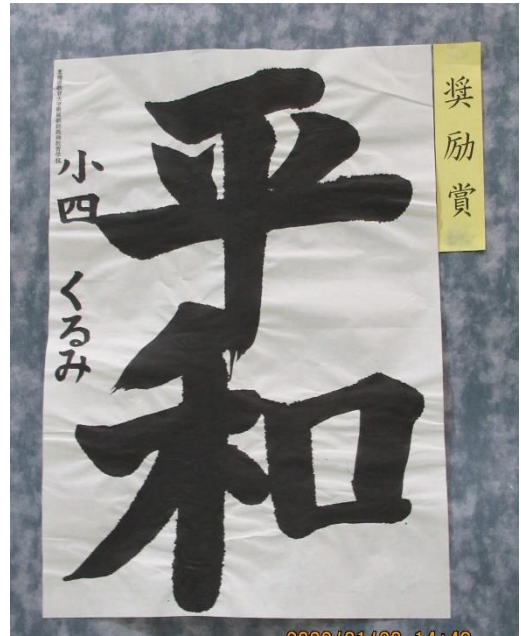 奨励賞
平和
小四 くるみ